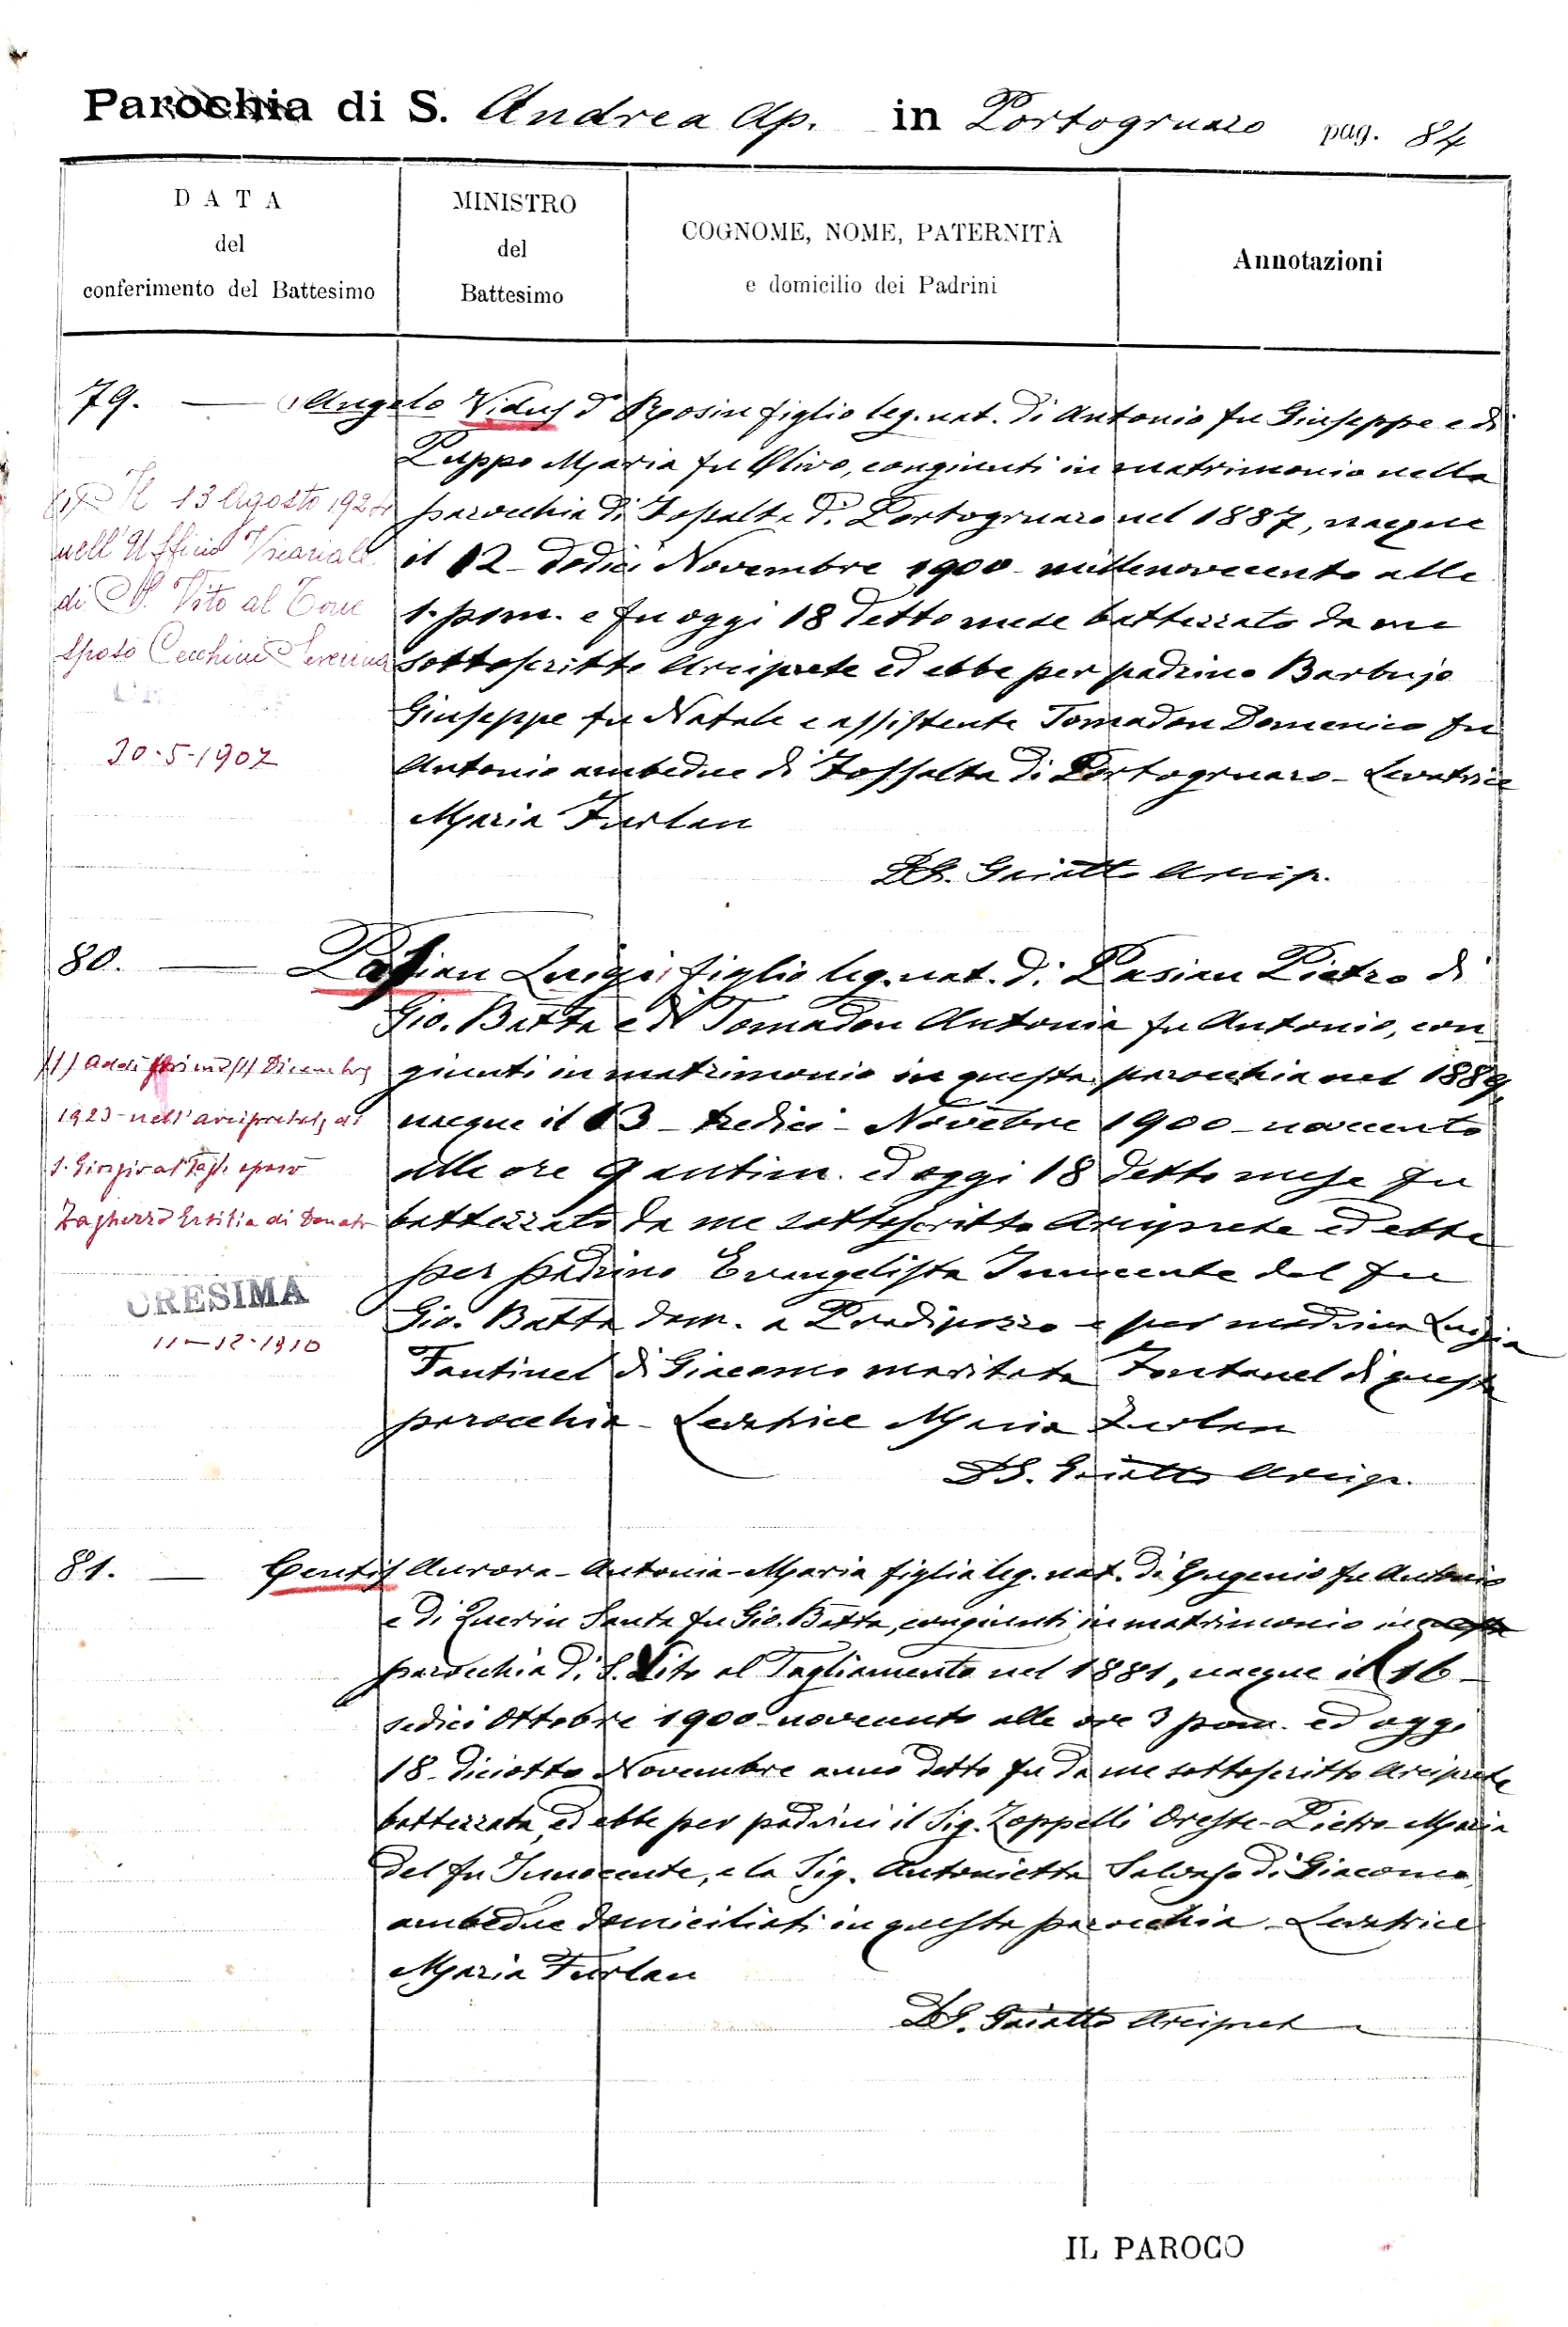 Parochia di S. Andrea Ap. in Portogruaro pag. 84
DATA
del
conferimento del Battesimo
MINISTRO
del
Battesimo
COGNOME, NOME, PATERNITÀ
e domicilio dei Padrini
Annotazioni
79. — (1 Angelo Vidus d° Rosin figlio leg. nat. di Antonio fu Giuseppe e di
Puppo Maria fu Olivo, congiunti in matrimonio nella
parocchia di Fossalta di Portogruaro nel 1887, nacque
il 12 - dodici Novembre 1900 - millenovecento alle
1. pom. e fu oggi 18 detto mese battezzato da me
sottoscritto Arciprete ed ebbe per padrino Barbujo
Giuseppe fu Natale e assistente Tomadon Domenico fu
Antonio ambedue di Fossalta di Portogruaro - Levatrice
Maria Furlan
Gaiatto Arcip.
(1) Il 13 Agosto 1924
nell'Ufficio Vicariale
di S. Vito al
sposò Cecchini Severina
30-5-1907
80. — Pasian Luigi figlio leg. nat. di Pasian Pietro di
Gio. Batta e di Tomadon Antonia fu Antonio, con
giunti in matrimonio in questa parocchia nel 1889,
nacque il 13 - tredici - Novebre 1900 - novecento
alle ore 9 antim. ed oggi 18 detto mese fu
battezzato da me sottoscritto Arciprete ed ebbe
per padrino Evangelista Innocente del fu
Gio. Batta dom. a Pradipozzo e per madrina Luigia
Fantinel di Giacomo maritata Fontanel di questa
parocchia - Levatrice Maria Furlan
D. G. Gaiatto Arcip.
(1) Addì primo (1) Dicembre
1923 - nell'arcipretale di
S. Giorgio al Tagl. sposò
Zaghetto Ersilia di Donato
CRESIMA
11-12-1910
81. — Gentis Aurora - Antonia - Maria figlia leg. nat. di Eugenio fu Antonio
e di Querin Santa fu Gio. Batta, congiunti in matrimonio in
parocchia di S. Vito al Tagliamento nel 1881, nacque il 16 -
sedici Ottobre 1900 - novecento alle ore 3 pom. ed oggi
18 - diciotto Novembre anno detto fu da me sottoscritto Arciprete
battezzata, ed ebbe per padrini il Sig. Zoppelli Oreste - Pietro - Maria
del fu Innocente, e la Sig. Antonietta di Giacomo,
ambedue domiciliati in questa parocchia - Levatrice
Maria Furlan
D. G. Gaiatto Arcipret
IL PAROCO